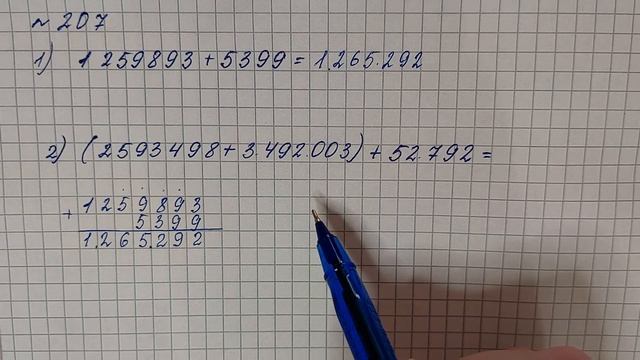 № 207
1) 1 259893 + 5399 = 1.265.292
2) (2593498 + 3.492.003) + 52.792 =
+ 1259893
5399
1.265.292